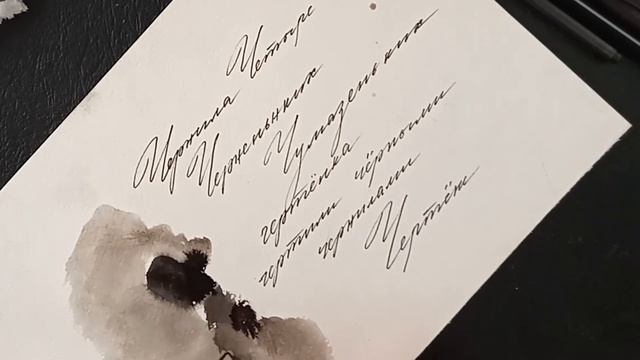 Четыре
Чернила
Черненьких
Чумазеньких
чертёнка
чертили чёрными
чернилами
Чертёж